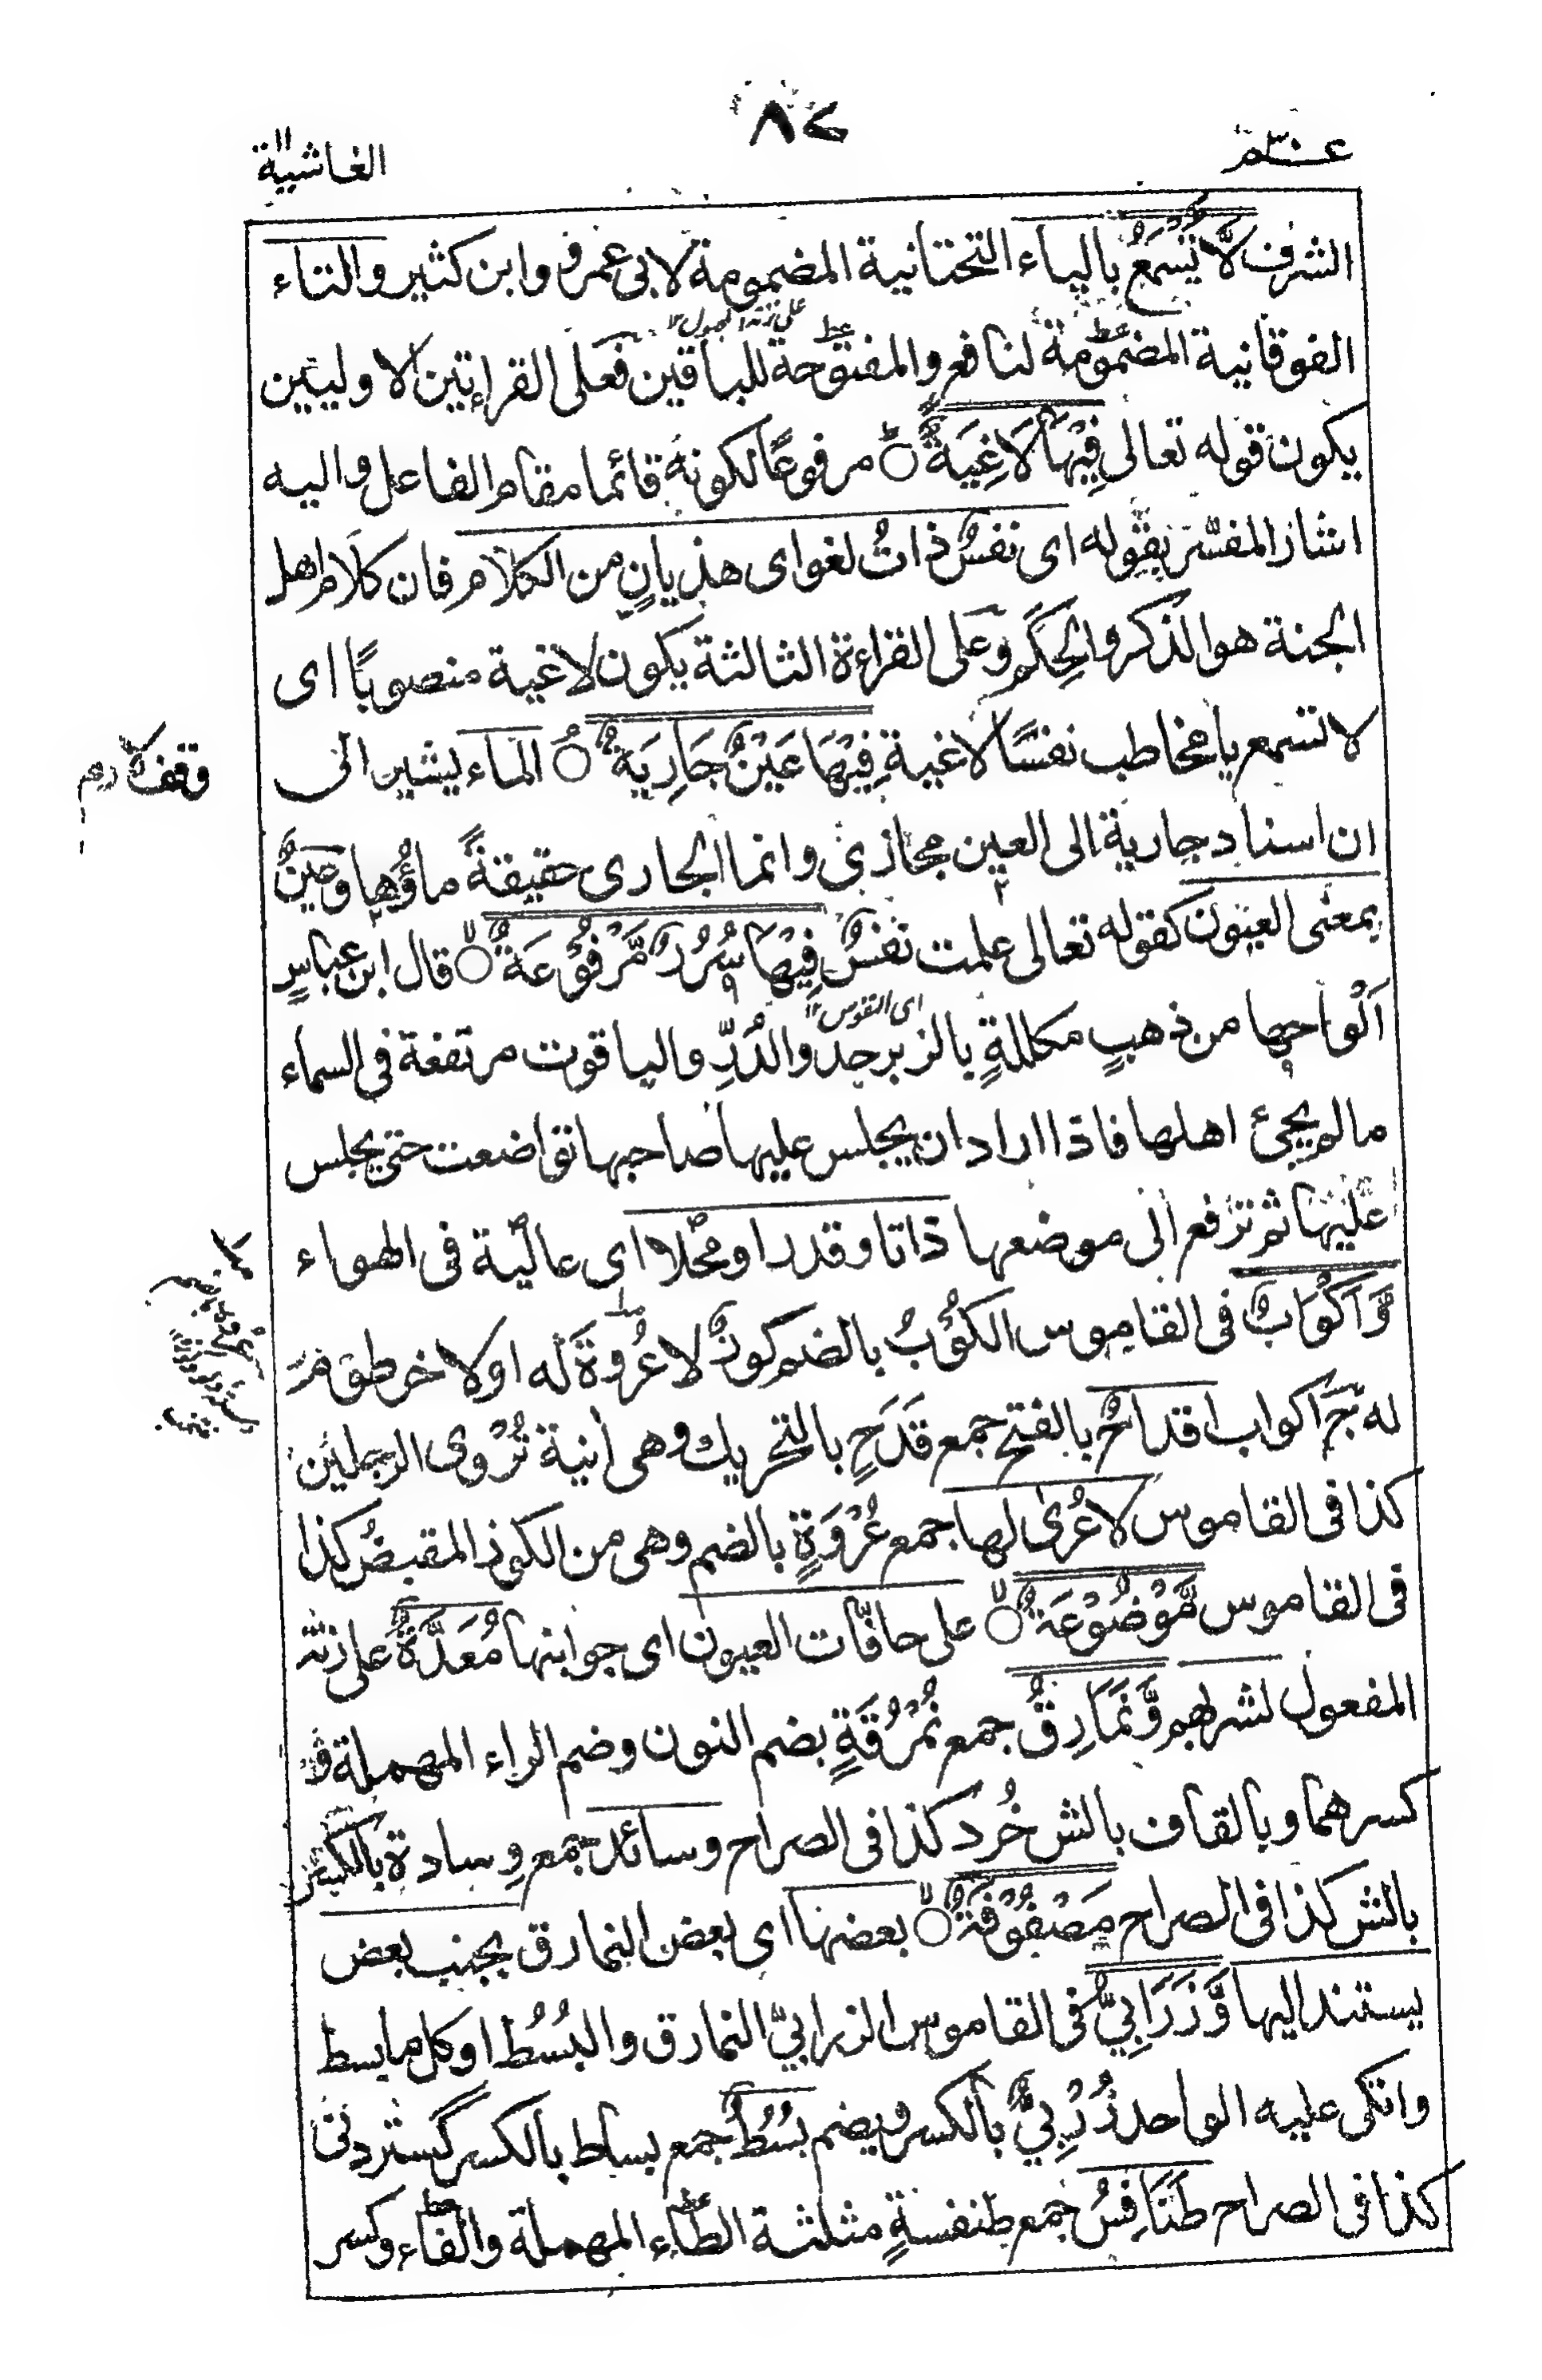 عـ٣٠ـم
٨٧
الغاشية
الشرف لَّا يُسْمَعُ بالياء التحتانية المضمومة لابى عمرو وابن كثير والتاء
الفوقانية المضمومة لنافع والمفتوحة للباقين فعلى القراءتين الاوليين
يكون قوله تعالى فِيْهَا لَاغِيَةٌ مرفوعًا لكونه قائما مقام الفاعل واليه
اشار المفسّر بقوله اى نفسٌ ذاتُ لغو اى هذيانٍ من الكلام فان كلام اهل
الجنة هو الذكر والحِكَم وعلى القراءة الثالثة يكون لاغية منصوبًا اى
لا تسمع يا مخاطب نفسًا لاغية فِيْهَا عَيْنٌ جَارِيَةٌ الماء يشير الى
وقف لازم
ان اسناد جارية الى العين مجازىّ وانما الجارى حقيقةً ماؤها وعينٌ
بمعنى العيون كقوله تعالى علمت نفسٌ فِيْهَا سُرُرٌ مَّرْفُوْعَةٌ قال ابن عباسٍ
اى القوس ١٢
اَلْواحها من ذهبٍ مكللةٍ بالزبرجد والدُرِّ والياقوت مرتفعة فى السماء
مالم يجئ اهلها فاذا اراد ان يجلس عليها صاحبها تواضعت حتى يجلس
عليها ثم ترفع الى موضعها ذاتا وقدرا ومحلا اى عالية فى الهواء
وَّاَكْوَابٌ فى القاموس الكُوْبُ بالضم كوزٌ لا عُروةَ له او لا خرطوم
له ج اكواب اقداحٌ بالفتح جمع قَدَحٍ بالتحريك وهى اٰنية تُرْوى الرجلين
كذا فى القاموس لا عُرى لها جمع عُرْوَةٍ بالضم وهى من الكوز المقبضُ كذا
فى القاموس مَّوْضُوْعَةٌ على حافّات العيون اى جوانبها مُعَدَّةٌ على زنة
المفعول لشربهم وَّنَمَارِقُ جمع نُمْرُقَةٍ بضم النون وضم الراء المهملة و
كسرهما وبالقاف بالش خُرد كذا فى الصراح وسائد جمع وِسادة بالكسر
بالش كذا فى الصراح مَصْفُوْفَةٌ بعضها اى بعض النمارق بجنب بعض
يستند اليها وَّزَرَابِيُّ فى القاموس الزرابيّ النمارق والبُسُط او كل ما بسط
واتكى عليه الواحد زُرْبِيٌّ بالكسر ويضم بُسُطٌ جمع بساط بالكسر گستردنى
كذا فى الصراح طَنَافِسُ جمع طنفسةٍ مثلثة الطاء المهملة والفاء وكسر